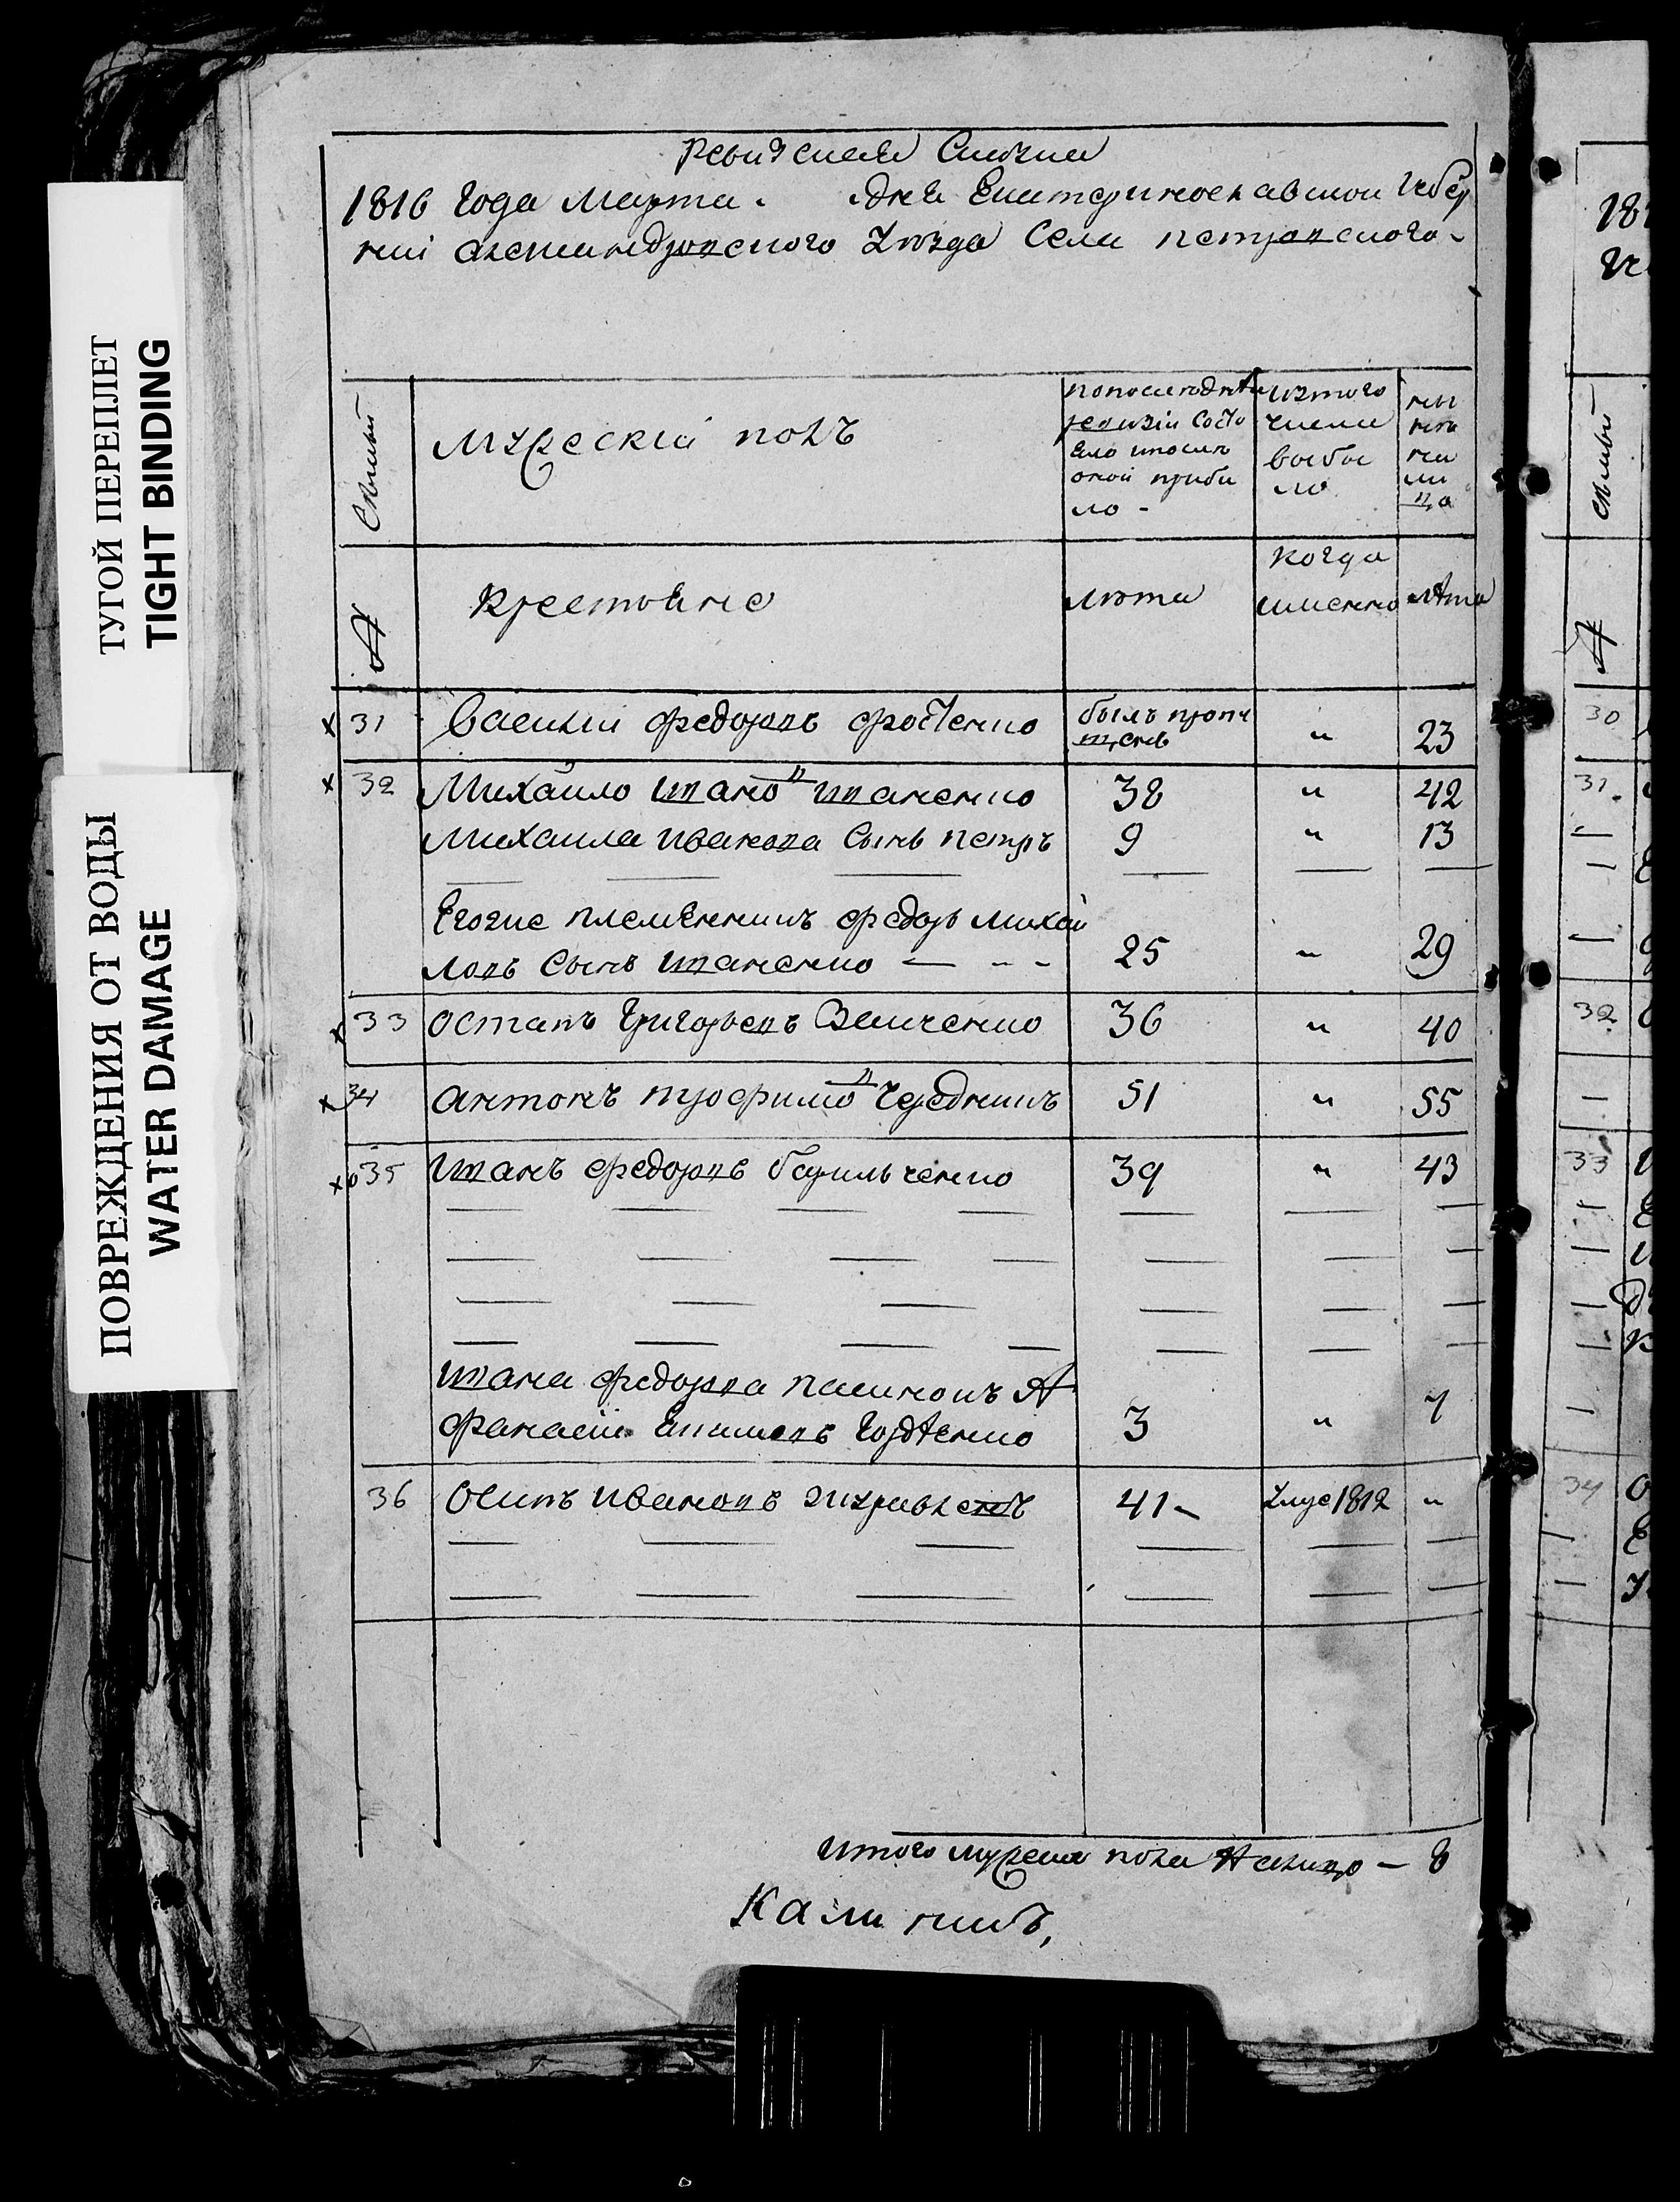 ТУГОЙ ПЕРЕПЛЕТ
TIGHT BINDING
ПОВРЕЖДЕНИЯ ОТ ВОДЫ
WATER DAMAGE
Ревизская Сказка
1816 Года Марта. дня Екатеринославской Губер
ніи александровского Уезда Села петровского
мужескій полъ
по последней ревизіи состояло и после оной прибыло
изтого числа выбыло
ныне на лицо
Крестьяне
лѣта
когда именно
лѣта
31 Василій федоровъ был пропущенъ " 23
32 Михайло ивано в иваненко 38 " 42
Михаила иванова Сынъ петръ 9 " 13
Егоже племянникъ федоръ михай
ловъ Сынъ иваненко 25 " 29
33 остапъ Григорьевъ Величенко 36 " 40
34 антонъ трофимо в Чередникъ 51 " 55
35 иванъ федоровъ 39 " 43
ивана федорова пасинокъ А
фанасій Екимовъ 3 " 7
36 Осипъ ивановъ 41 Умре 1812 "
итого мужеска пола налицо — 8
18
30
31
32
33
34